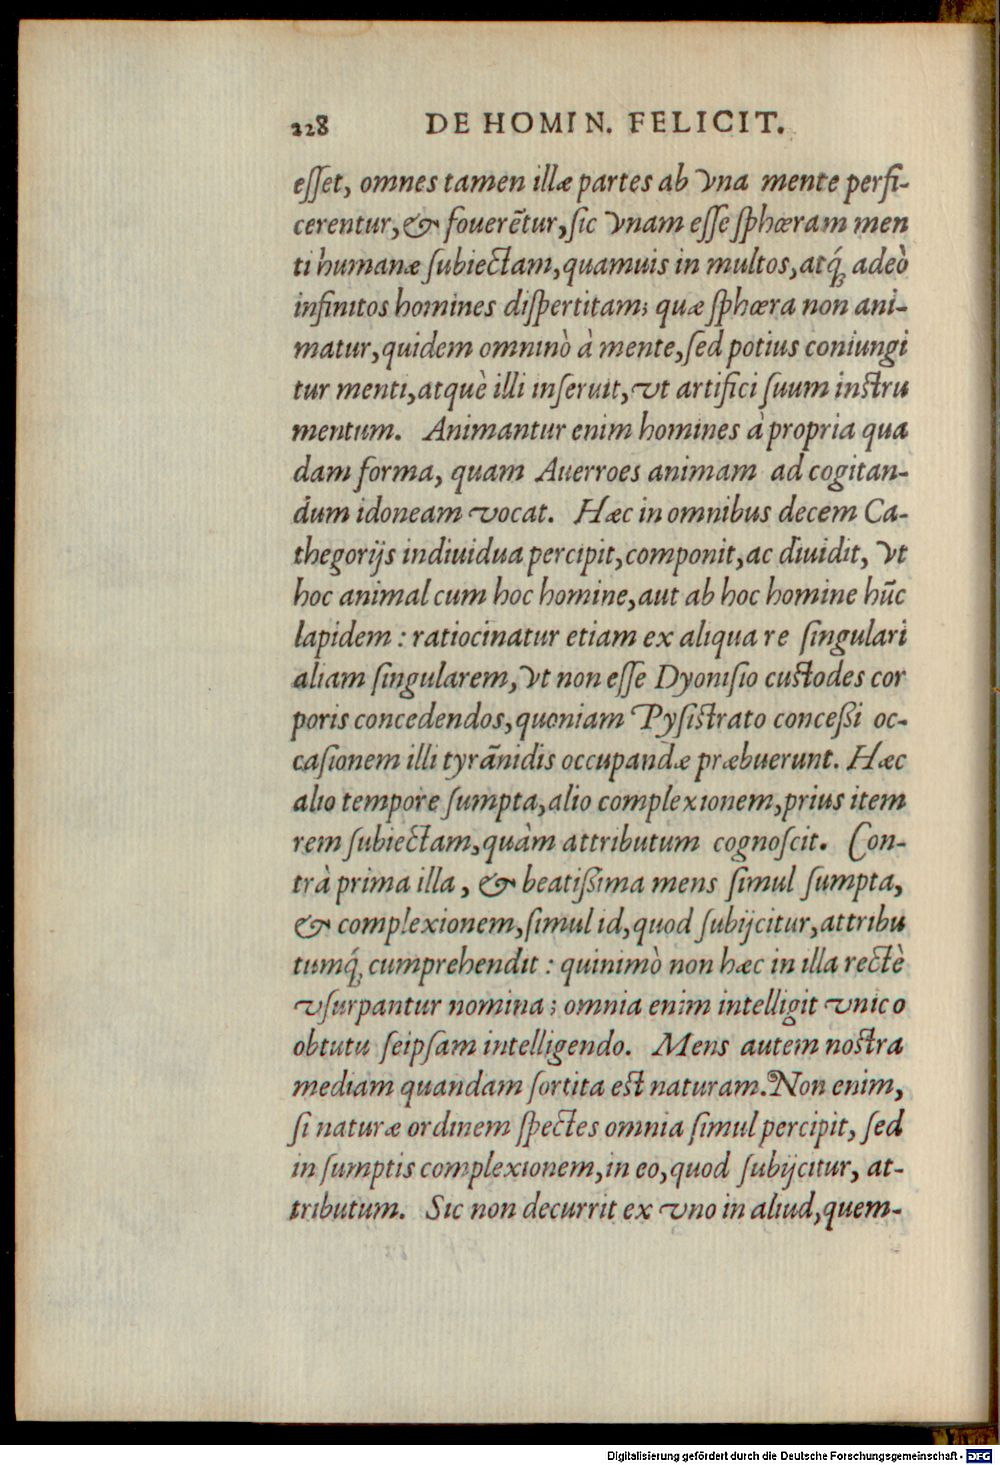 228 DE HOMIN. FELICIT.
eſſet, omnes tamen illæ partes ab vna mente perfi-
cerentur, & fouerẽtur, ſic vnam eſſe ſphœram men
ti humanæ ſubiectam, quamuis in multos, atq́; adeò
infinitos homines diſpertitam; quæ ſphœra non ani-
matur, quidem omninò à mente, ſed potius coniungi
tur menti, atquè illi inſeruit, vt artifici ſuum inſtru
mentum. Animantur enim homines à propria qua
dam forma, quam Auerroes animam ad cogitan-
dum idoneam vocat. Hæc in omnibus decem Ca-
thegorijs indiuidua percipit, componit, ac diuidit, vt
hoc animal cum hoc homine, aut ab hoc homine hũc
lapidem : ratiocinatur etiam ex aliqua re ſingulari
aliam ſingularem, vt non eſſe Dyoniſio cuſtodes cor
poris concedendos, quoniam Pyſiſtrato conceßi oc-
caſionem illi tyrãnidis occupandæ præbuerunt. Hæc
alio tempore ſumpta, alio complexionem, prius item
rem ſubiectam, quàm attributum cognoſcit. Con-
trà prima illa, & beatißima mens ſimul ſumpta,
& complexionem, ſimul id, quod ſubijcitur, attribu
tumq́; cumprehendit : quinimò non hæc in illa rectè
vſurpantur nomina; omnia enim intelligit vnico
obtutu ſeipſam intelligendo. Mens autem noſtra
mediam quandam ſortita eſt naturam. Non enim,
ſi naturæ ordinem ſpectes omnia ſimul percipit, ſed
in ſumptis complexionem, in eo, quod ſubijcitur, at-
tributum. Sic non decurrit ex vno in aliud, quem-
Digitalisierung gefördert durch die Deutsche Forschungsgemeinschaft - DFG